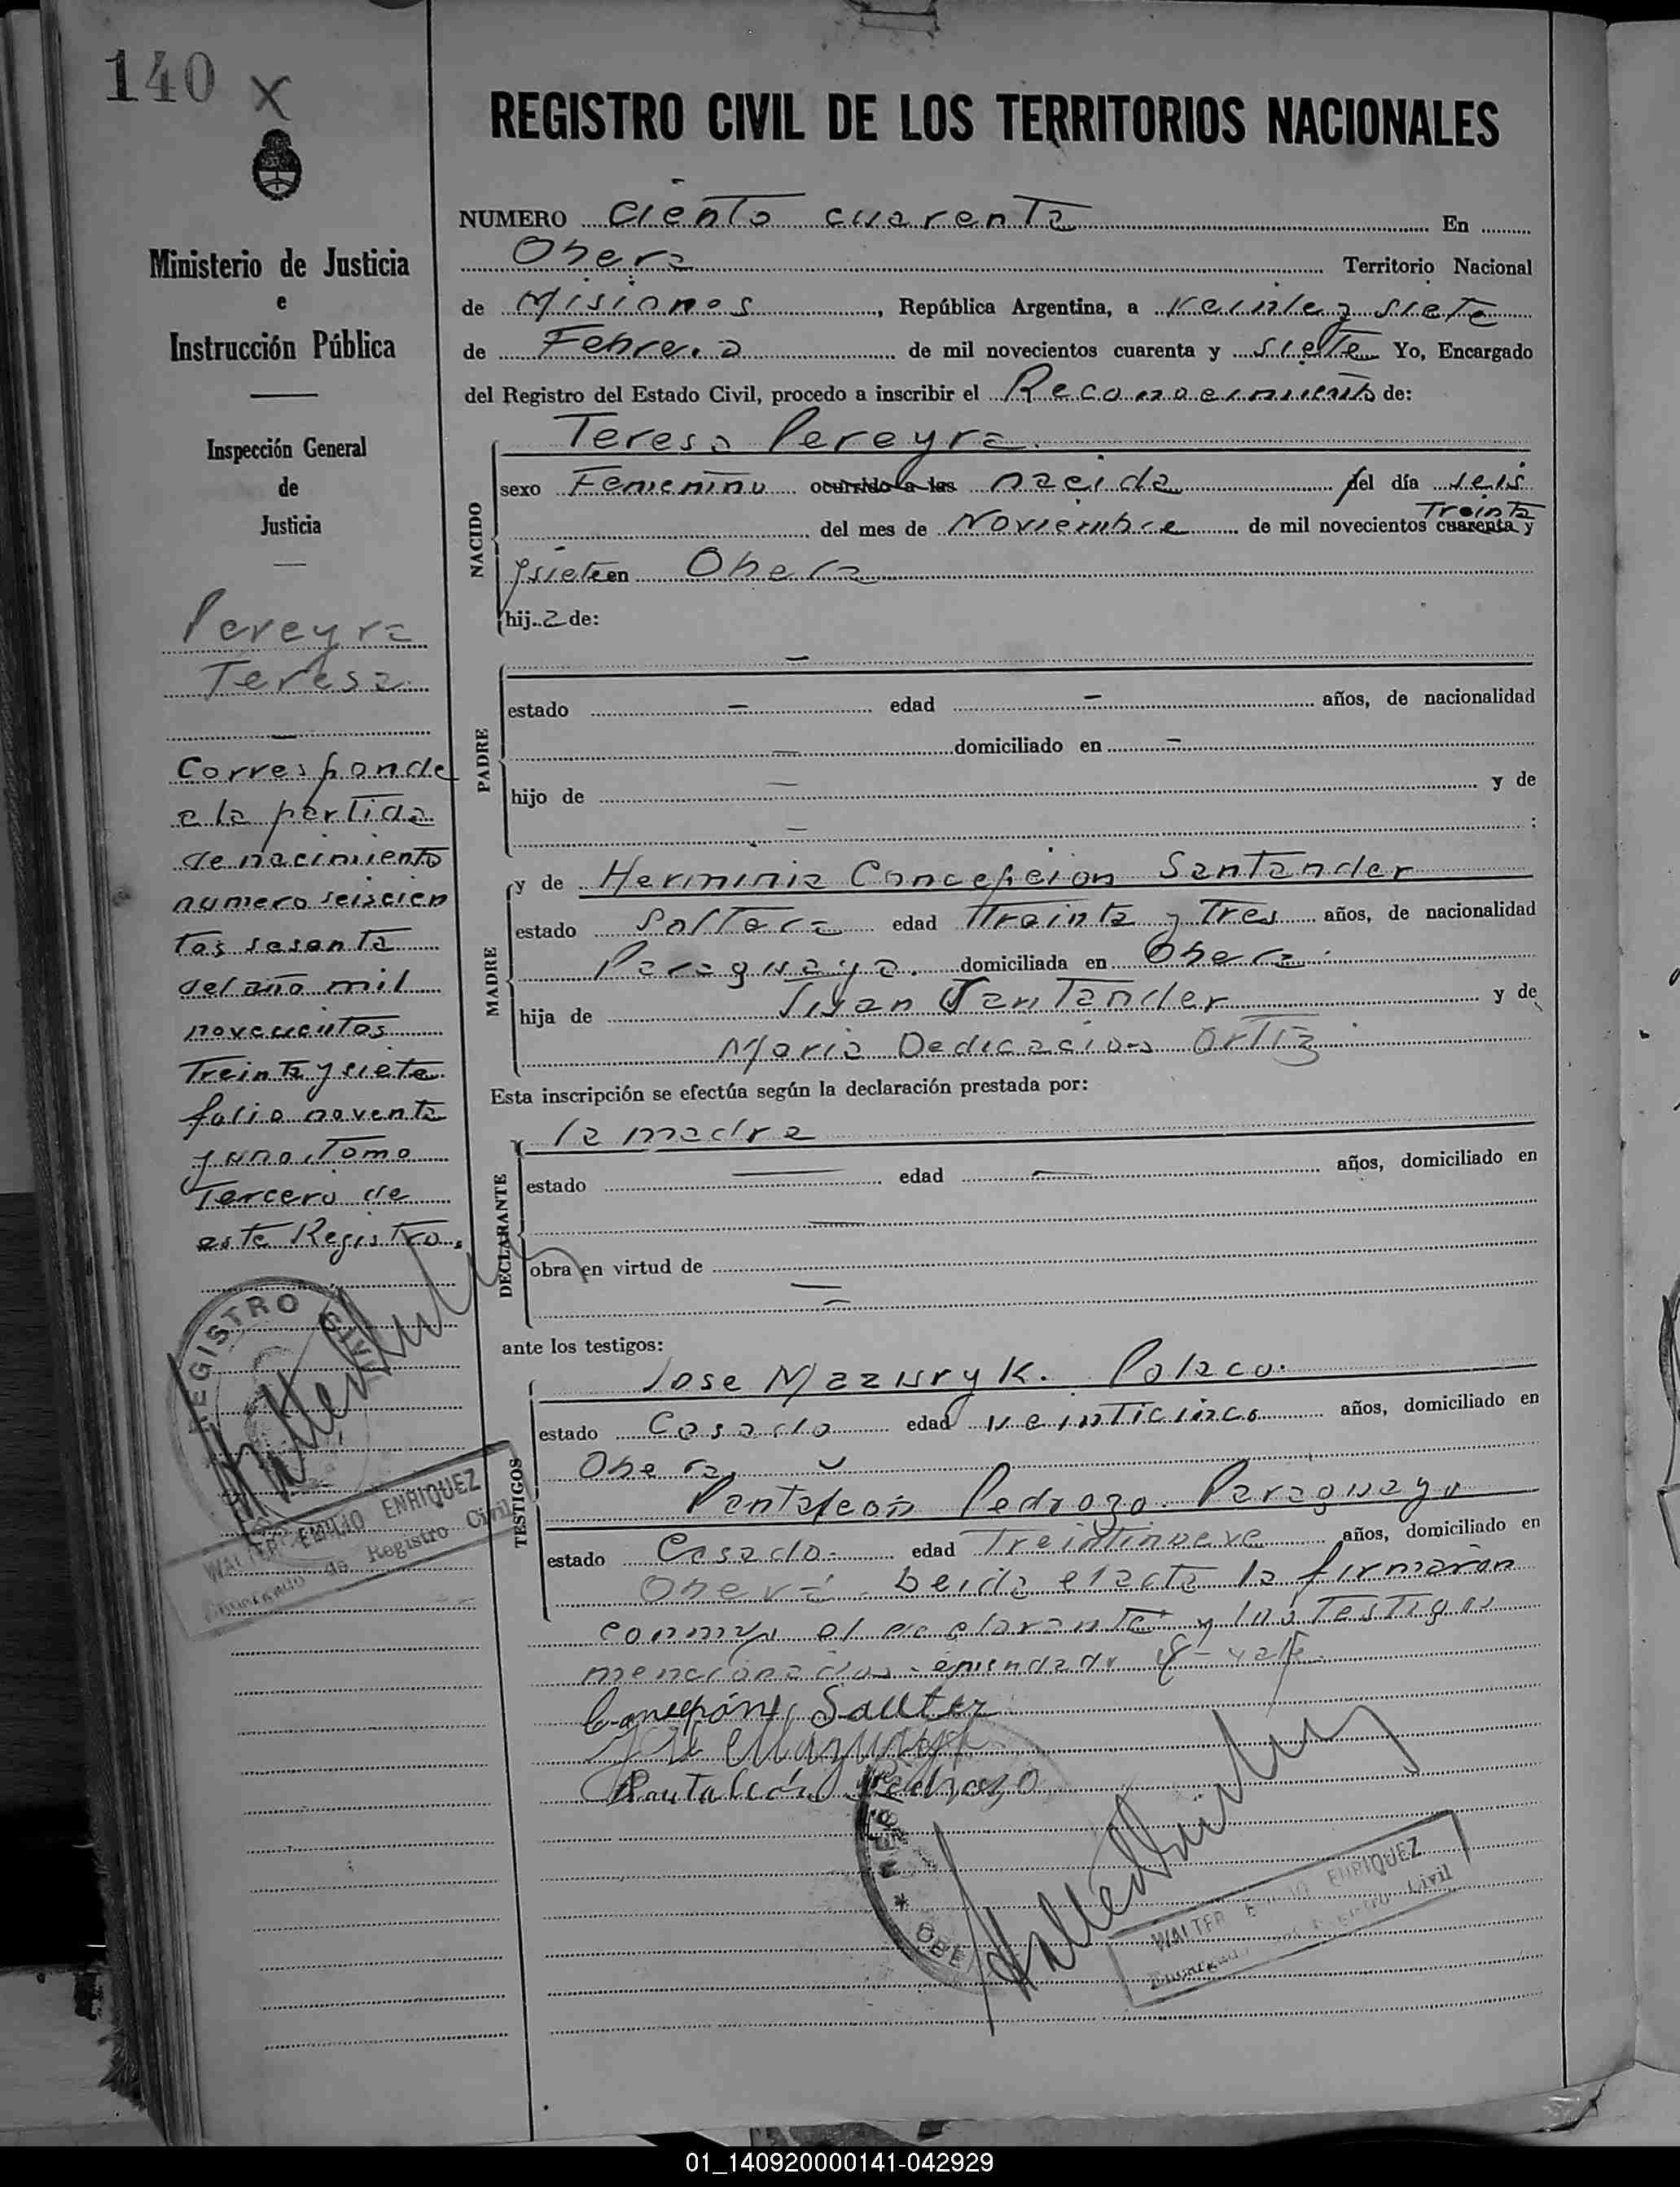 140 X
Ministerio de Justicia
e
Instrucción Pública
Inspección General
de
Justicia
Pereyra
Teresa
Corresponde
a la partida
de nacimiento
numero seiscien
tos sesenta
del año mil
novecientos
Treinta y siete
folio noventa
y uno. Tomo
Tercero de
este Registro.
REGISTRO CIVIL
WALTER EMILIO ENRIQUEZ
Encargado de Registro Civil
REGISTRO CIVIL DE LOS TERRITORIOS NACIONALES
NUMERO ciento cuarenta En
Obera Territorio Nacional
de Misiones, República Argentina, a veinte y siete
de Febrero de mil novecientos cuarenta y siete Yo, Encargado
del Registro del Estado Civil, procedo a inscribir el Reconocimiento de:
NACIDO
Teresa Pereyra.
sexo Femenino ocurrido a las nacida del día seis
Treinta
del mes de Noviembre de mil novecientos cuarenta y
siete en Obera
hija de:
PADRE
estado edad años, de nacionalidad
domiciliado en
hijo de y de
MADRE
y de Herminia Concepcion Santander
estado Soltera edad Treinta y Tres años, de nacionalidad
Paraguaya. domiciliada en Obera.
hija de Juan Santander y de
Maria Dedicacion Ortiz
Esta inscripción se efectúa según la declaración prestada por:
DECLARANTE
la madre
estado edad años, domiciliado en
obra en virtud de
ante los testigos:
TESTIGOS
Jose Mazuryk. Polaco.
estado Casado edad veinticinco años, domiciliado en
Obera,
Pantaleón Pedrozo. Paraguayo
estado Casado. edad Treintinueve años, domiciliado en
Oberá. Leida el acta la firmaron
conmigo el declarante y los Testigos
mencionados - enmendado
Pantaleón Pedrozo
OBE
WALTER EMILIO ENRIQUEZ
Encargado del Registro Civil
01_140920000141-042929